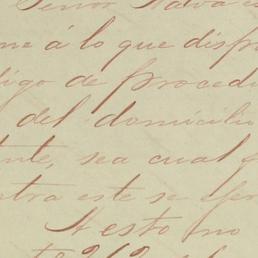 Señor
me á lo que disp
digo de procedi
del domicilio
nte, sea cual q
ntra este se eje
A esto no